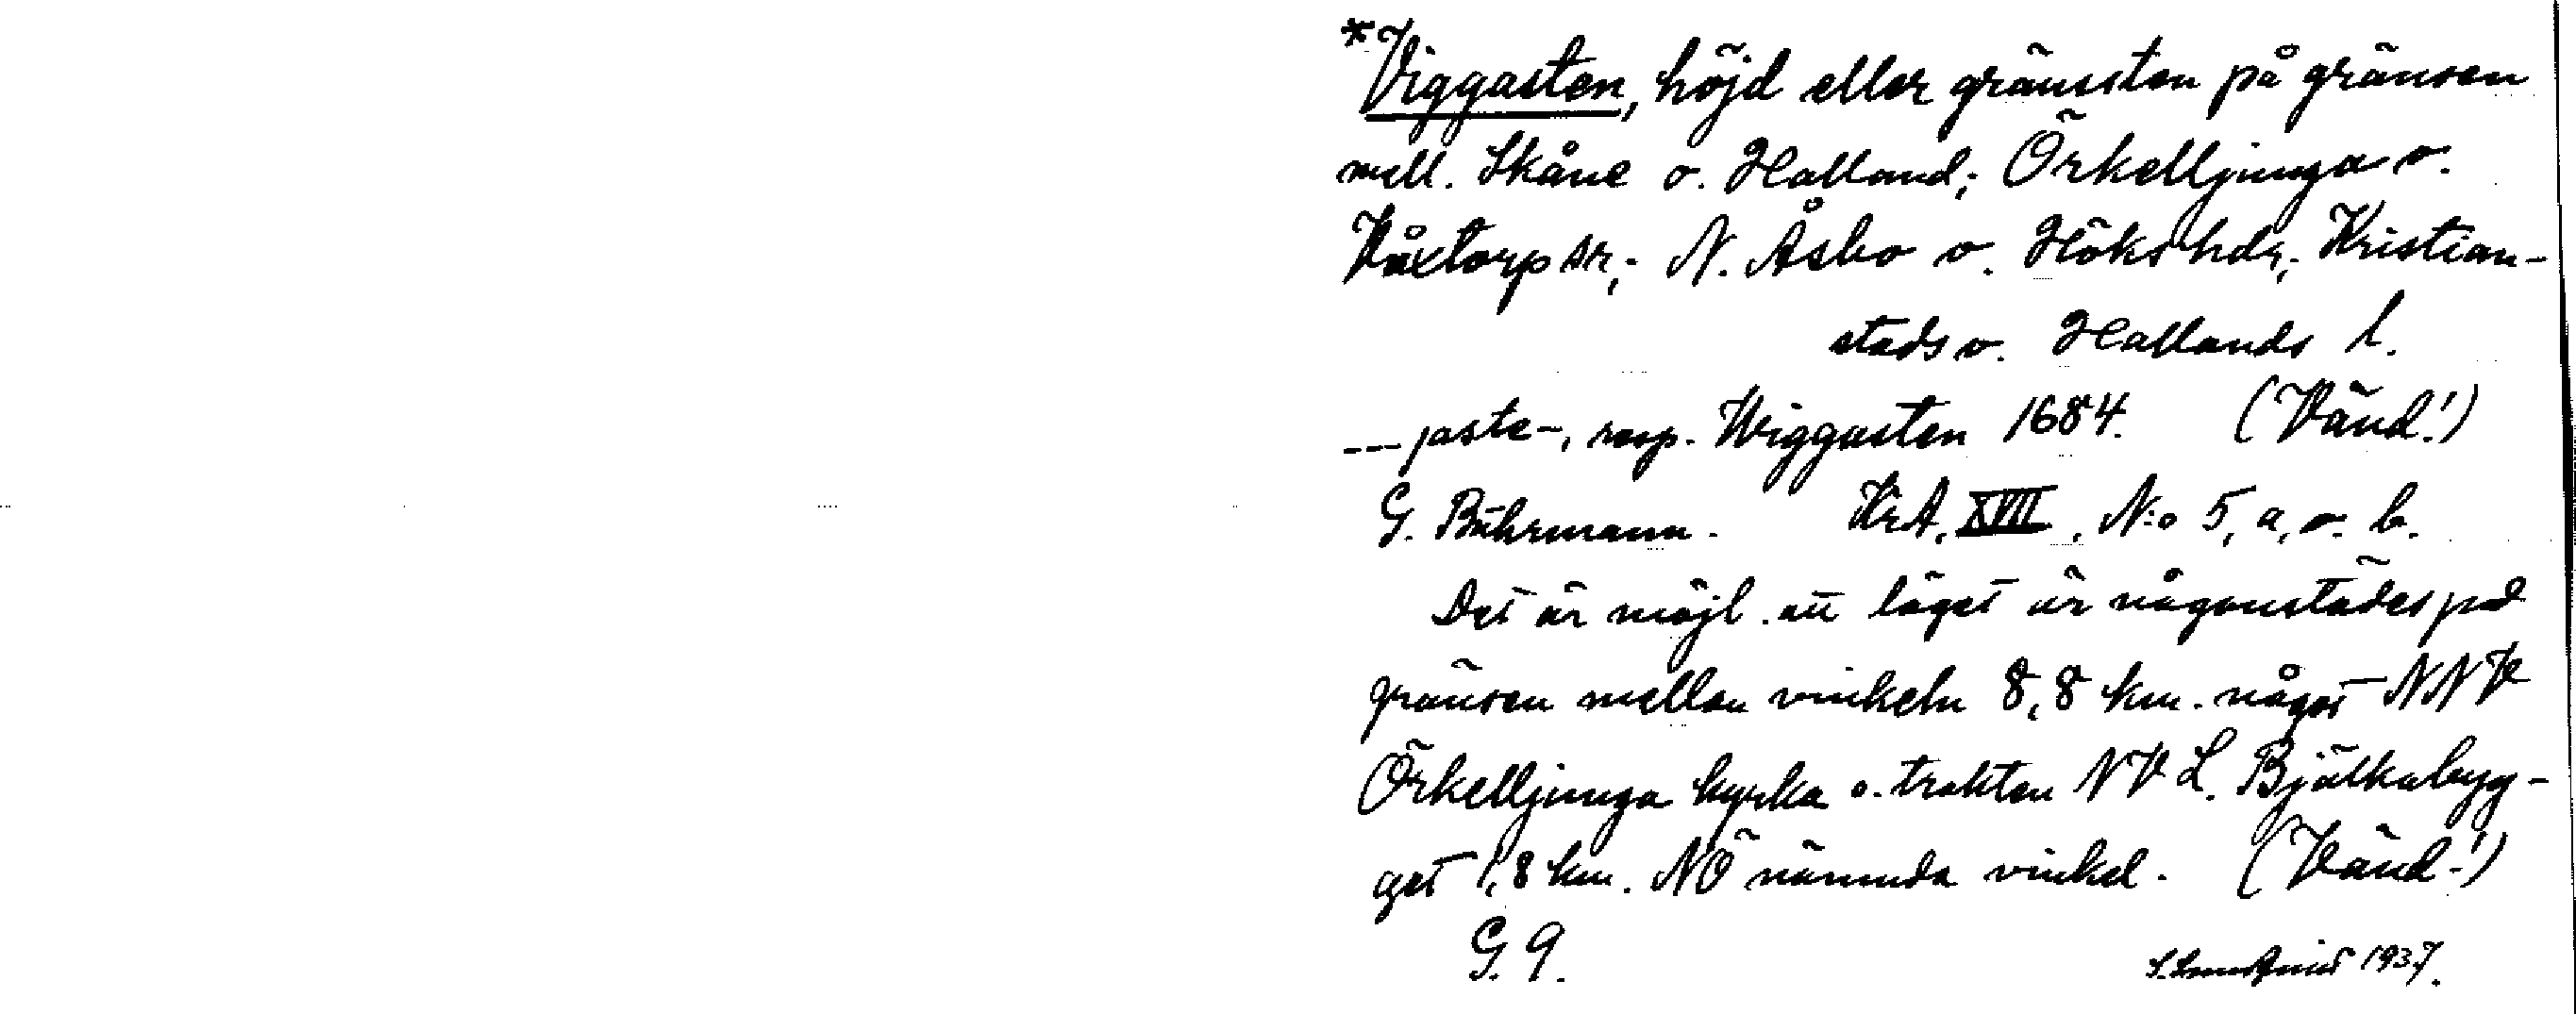 *Viggasten, höjd eller gränssten på gränsen
mell. Skåne o. Halland; Örkelljunga o.
Våxtorp snr; N. Åsbo o. Höks hdr; Kristian-
stads o. Hallands l.
--- paste-, resp. Wiggasten 1684. (Vänd!)
G. Buhrmann. KrA. XVII. N:o 5, a, o. b.
Det är möjl. att läget är någonstädes på
gränsen mellan vinkeln 8,8 km. något NNV
Örkelljunga kyrka o. trakten NV L. Bjälkabyg-
get 1,8 km. NÖ nämnda vinkel. (Vänd!)
G. 9.
1937.